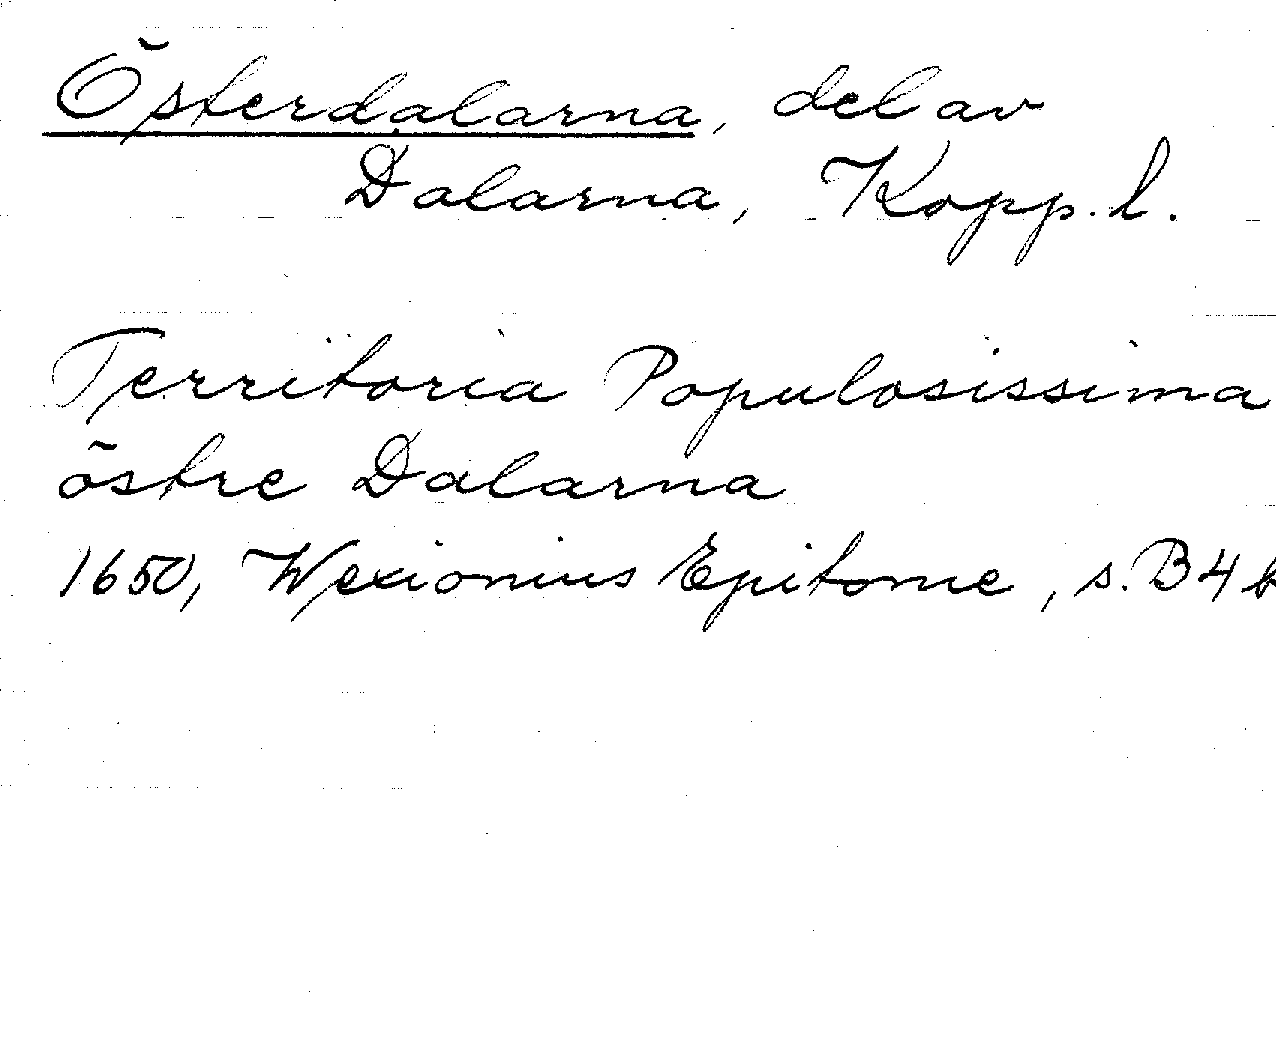 Österdalarna, del av
Dalarna, Kopp. l.
Territoria Populosissima
östre Dalarna
1650, Wexionius Epitome, s. B4b